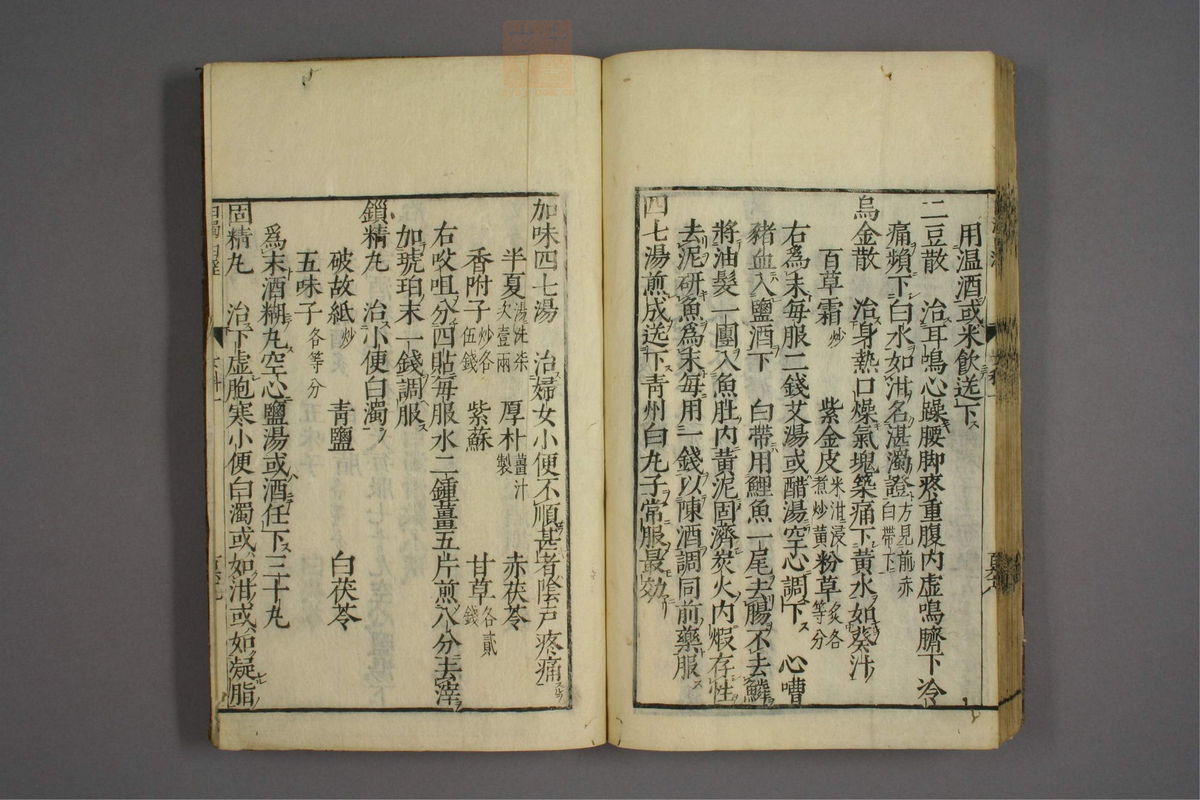 用温酒或米飲送下
二豆散　治耳鳴心躁腰脚疼重腹内虛鳴臍下冷
痛頻下白水如泔名湛濁證方見前赤白帶下
烏金散　治身熱口燥氣塊築痛下黃水如葵汁
百草霜炒　紫金皮米泔浸煮炒黃　粉草炙各等分
右爲末每服二錢艾湯或醋湯空心調下　心嘈
豬血入鹽酒下　白帶用鯉魚一尾去腸不去鱗
將油髮一團入魚肚内黃泥固濟炭火内煆存性
去泥研魚爲末每用一錢以陳酒調同前藥服
四七湯煎成送下靑州白丸子常服最効
加味四七湯　治婦女小便不順甚者陰戸疼痛
半夏湯洗柒次壹兩　厚朴薑汁製　赤茯苓
香附子炒各伍錢　紫蘇　甘草各貳錢
右㕮咀分四貼每服水二鍾薑五片煎八分去滓
加琥珀末一錢調服
鎖精丸　治小便白濁
破故紙炒　靑鹽　白茯苓
五味子各等分
爲末酒糊丸空心鹽湯或酒任下三十丸
固精丸　治下虛胞寒小便白濁或如泔或如凝脂